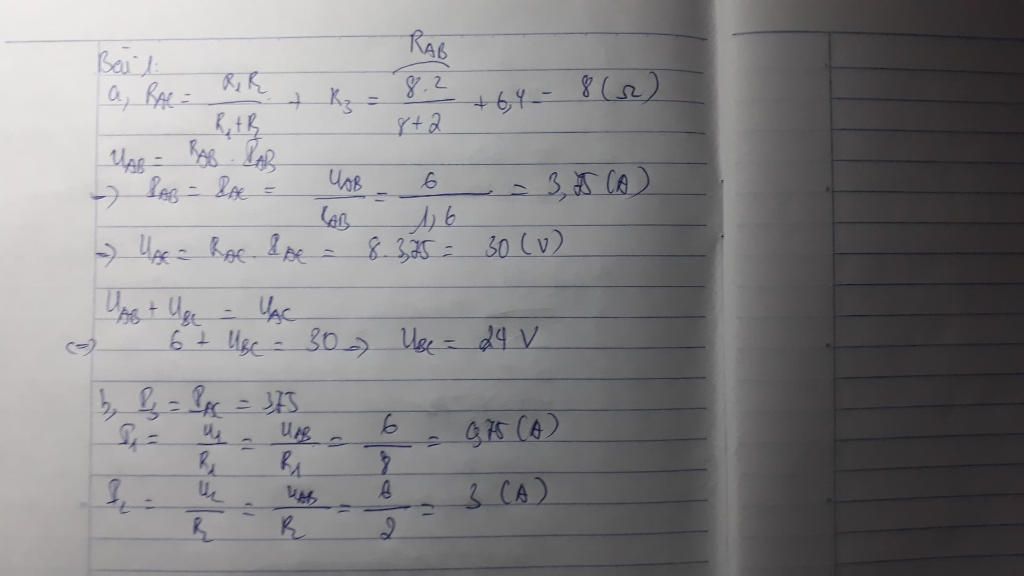 R_AB
Bài 1:
a, R_AC = R₁R₂ / (R₁+R₂) + R₃ = 8.2 / (8+2) + 6,4 = 8 (Ω)
U_AB = R_AB . I_AB
→ I_AB = I_AC = U_AB / R_AB = 6 / 1,6 = 3,75 (A)
→ U_AC = R_AC . I_AC = 8.3,75 = 30 (V)
U_AB + U_BC = U_AC
<=> 6 + U_BC = 30 → U_BC = 24 V
b, I₃ = I_AC = 3,75
I₁ = U₁ / R₁ = U_AB / R₁ = 6 / 8 = 0,75 (A)
I₂ = U₂ / R₂ = U_AB / R₂ = 6 / 2 = 3 (A)